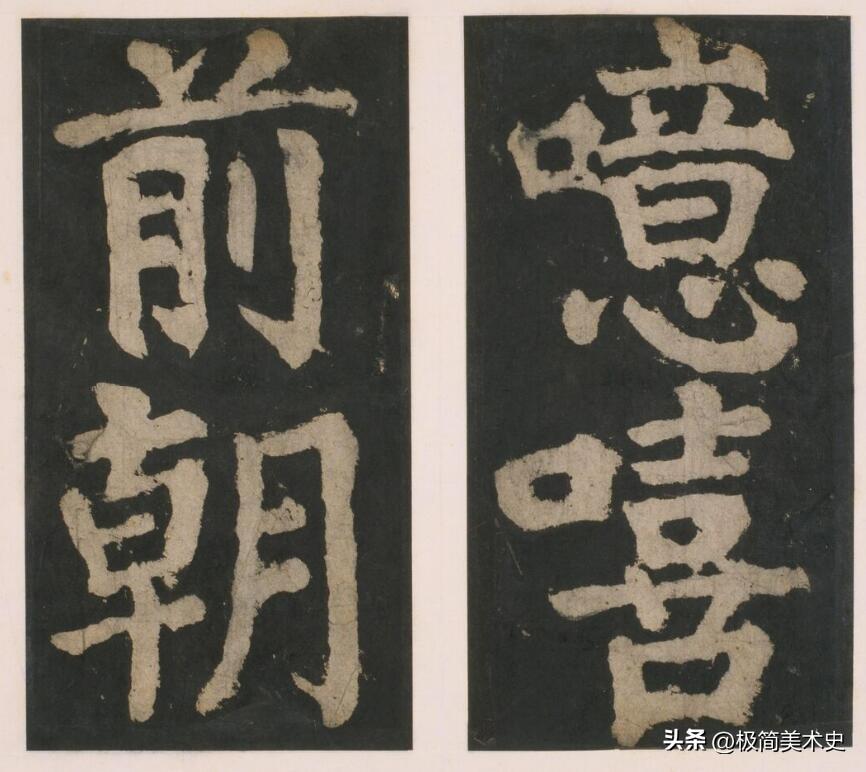 噫嘻
前朝
头条 @极简美术史